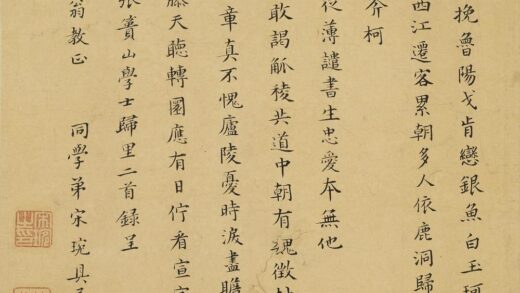 挽魯陽戈肯戀銀魚白玉珂
西江遷客累朝多人依鹿洞歸
介柯
從薄譴書生忠愛本無他
敢謁觚稜共道中朝有魂徵
章真不愧廬陵憂時淚盡
天聽轉圜應有日佇看宣室
張簣山學士歸里二首錄呈
翁教正
同學弟宋琬具